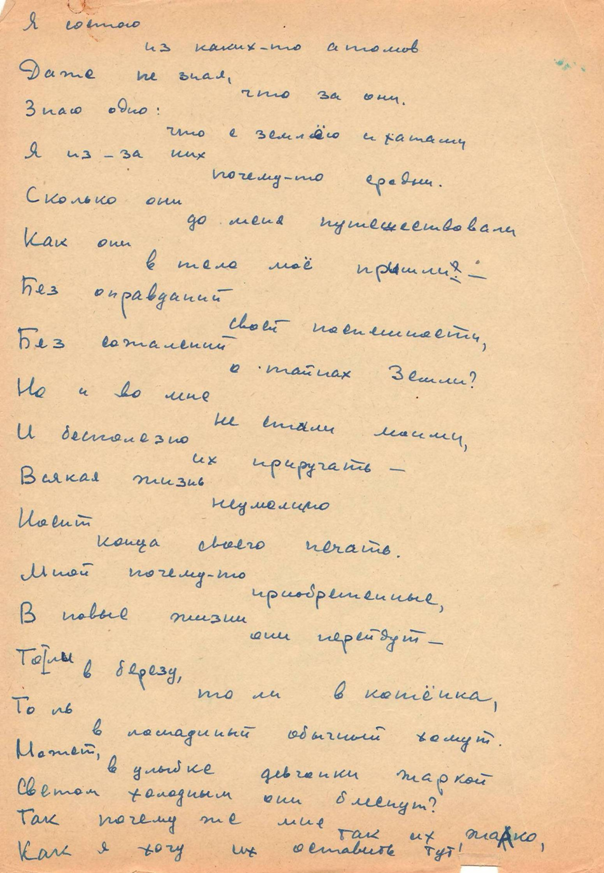 Я состою
из каких-то атомов
Даже не зная,
что за они.
Знаю одно:
что с землёю и хатами
Я из-за них
почему-то сродни.
Сколько они
до меня путешествовали
Как они
в тело моё пришли? —
Без оправданий
своей поспешности,
Без сожалений
о тайнах Земли?
Но и во мне
не стали моими,
И бесполезно
их приручать —
Всякая жизнь
неумолимо
Носит
конца своего печать.
Мной почему-то
приобретенные,
В новые жизни
они перейдут —
То ли
в березу,
то ли в котёнка,
То ль
в лошадиный обычный хомут.
Может,
в улыбке девчонки жаркой
Светом холодным они блеснут?
Так почему же мне
так их жалко,
Как я хочу их оставить тут!